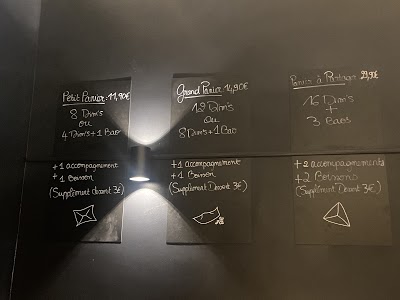 Petit Panier: 11,90€
8 Dim's
ou
4 Dim's + 1 Bao
+ 1 accompagnement
+ 1 Boisson
(Supplément Dessert 3€)
Grand Panier 14,90€
12 Dim's
ou
8 Dim's + 1 Bao
+ 1 accompagnement
+ 1 Boisson
(Supplément Dessert 3€)
Panier à Partager 29,90€
16 Dim's
+
3 Baos
+ 2 accompagnements
+ 2 Boissons
(Supplément Dessert 3€)